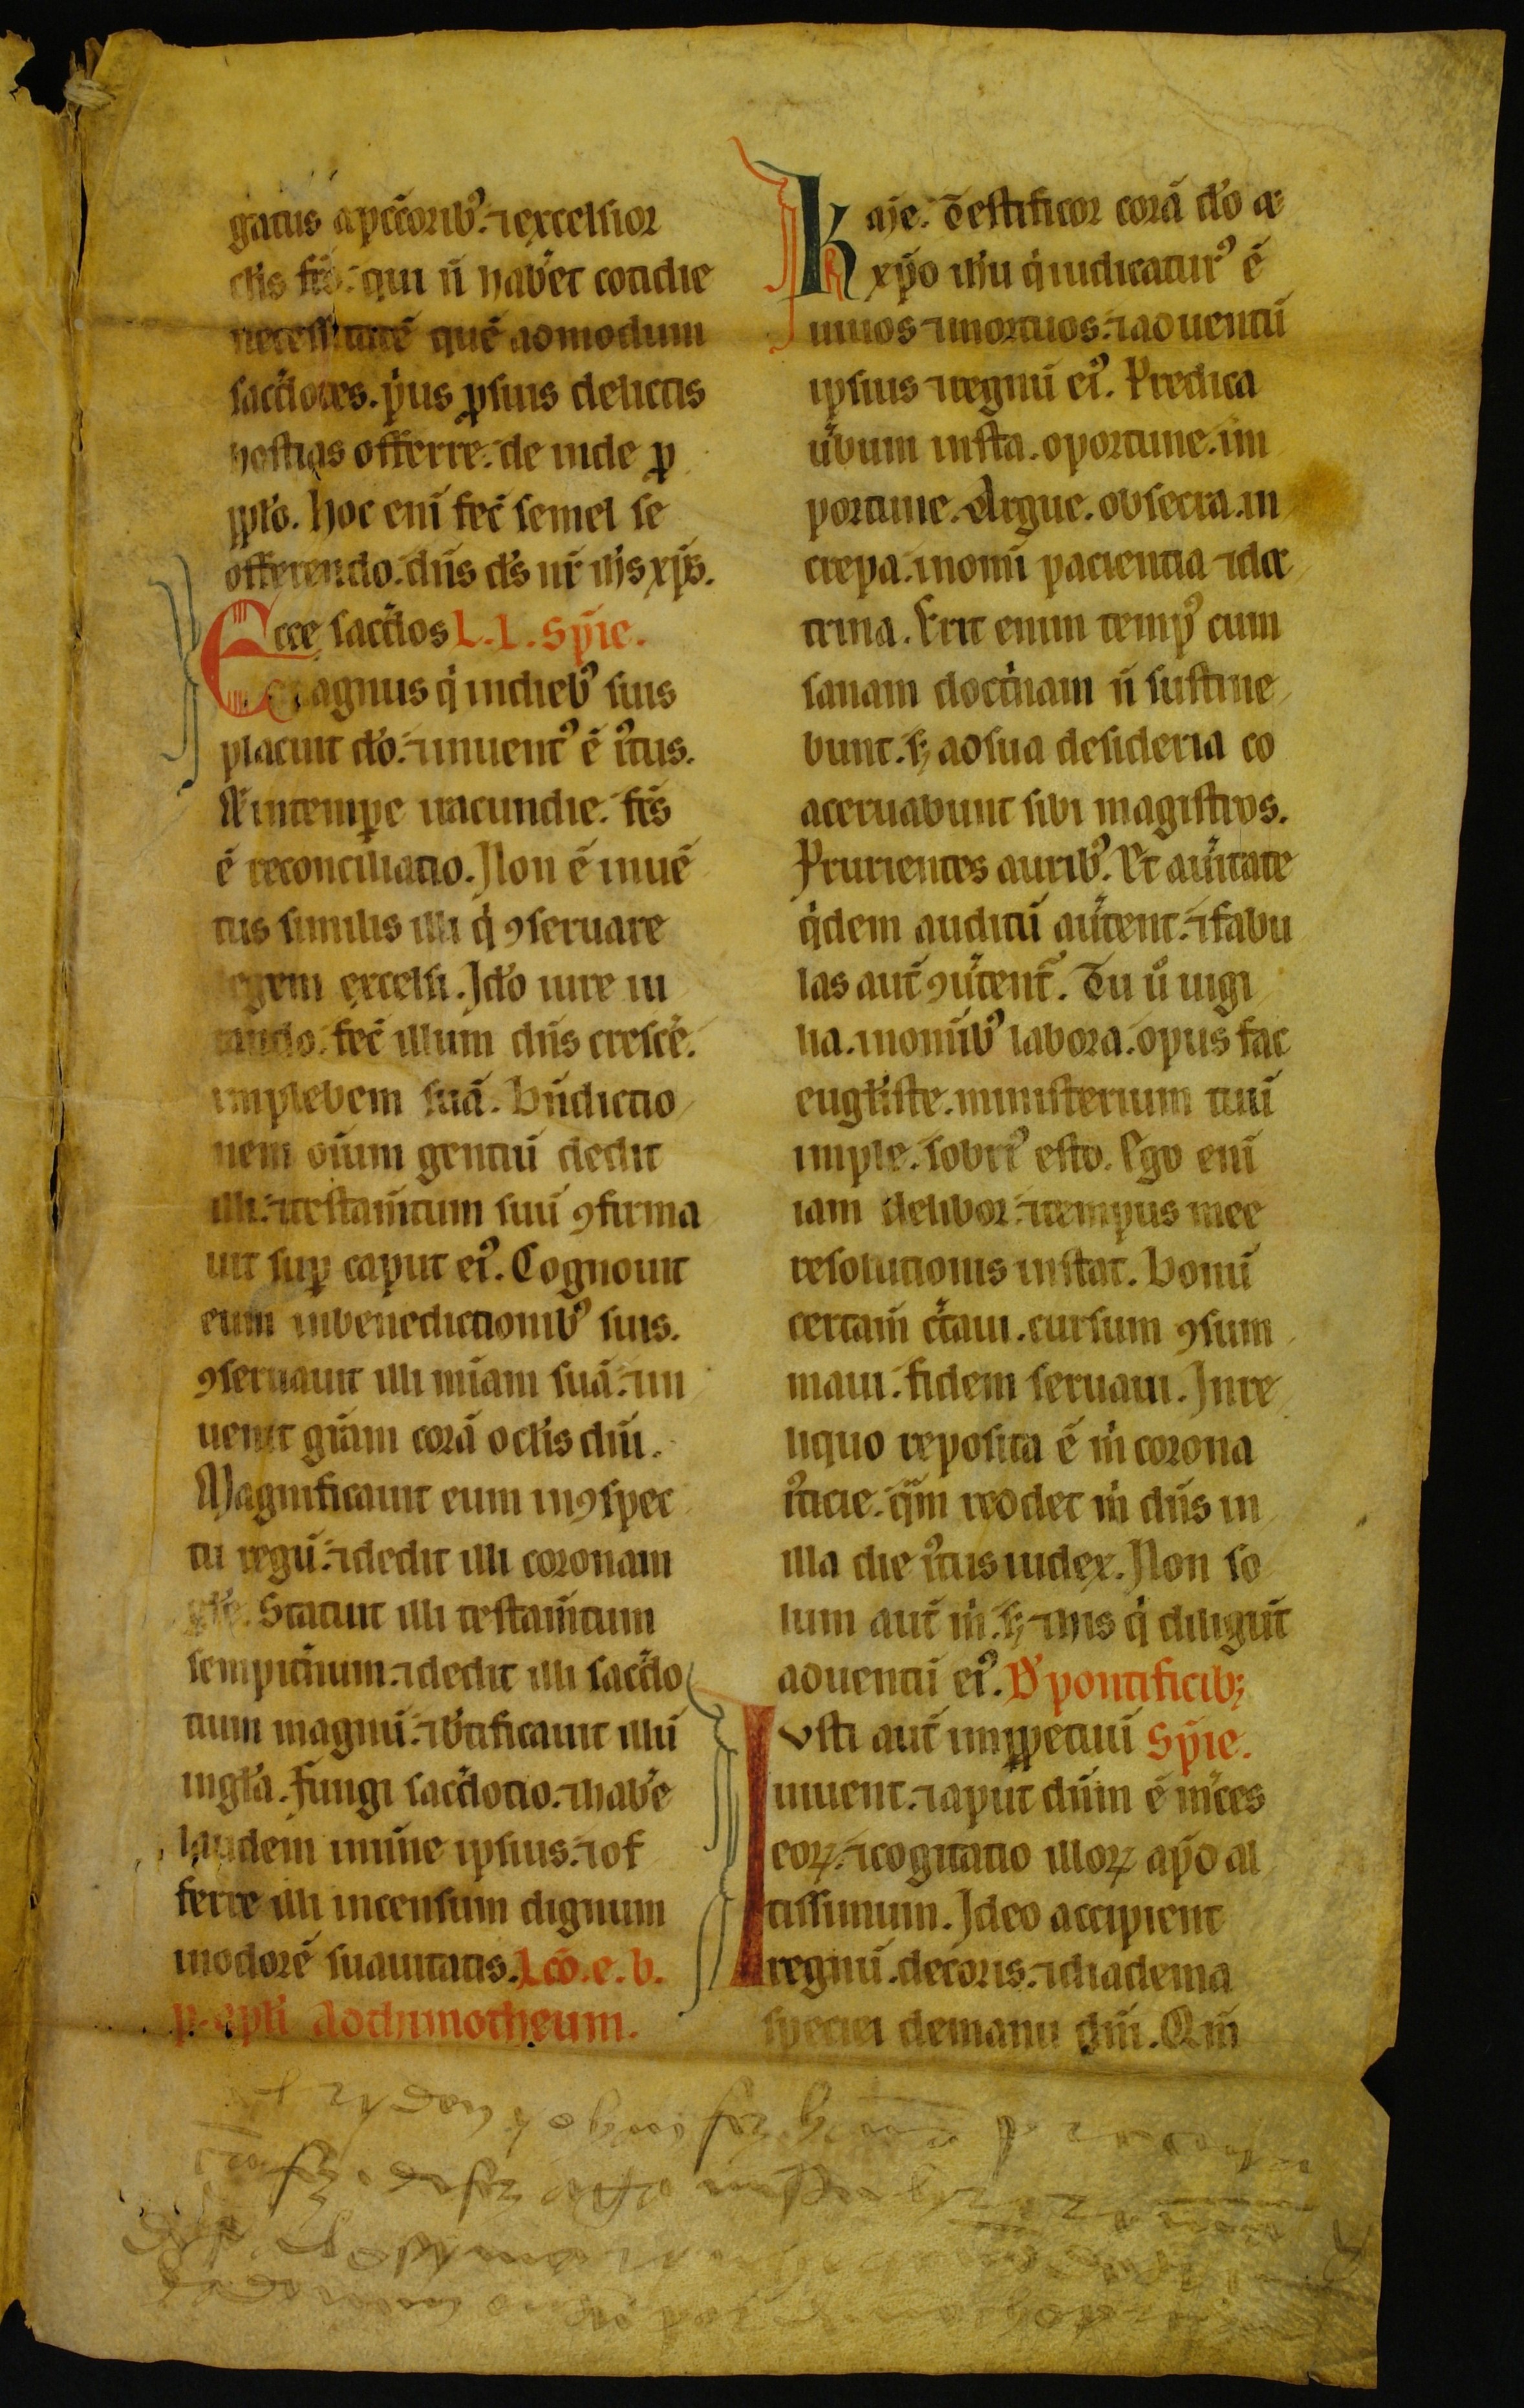 gatus a pctoribꝰ. ⁊excelsior
clis fcs. qui n̄ haberet cotidie
necessitatē quē admodum
sacdotes. pus ꝓsuis delictis
hostias offerre. de inde ꝓ
pplo. hoc eni fec̄ semel se
offerendo. dn̄s ds nr̄ ihs xp̄s.
Ecce sacdos L. l. sp̄ie.
magnus q̇ indiebꝰ suis
placuit do. ⁊inuentꝰ ē iꝰtus.
Et intempe iracundie. fcs
ē reconciliatio. Non ē inuē
tus similis illi q̇ ꝯseruaret
legem excelsi. Ido iure iu
rando. fec̄ illum dn̄s cresce.
inplebem suā. bn̄dictio
nem oīum gentiū dedit
illi. ⁊testam̄tum suū ꝯfirma
uit suꝑ caput eiꝰ. Cognouit
eum inbenedictionibꝰ suis.
ꝯseruauit illi miam suā. ⁊in
uenit gram corā oclis dn̄i.
Magnificauit eum inꝯspec
tu regū. ⁊dedit illi coronam
gle. Statuit illi testam̄tum
sempitnum. ⁊dedit illi sacdo
tium magnū. ⁊btificauit illū
ingla. fungi sacdotio. ⁊habe
laudem inn̄ie ipsius. ⁊of
ferre illi incensum dignum
inodorē suauitatis. Lcō. e. b.
p. apli adthimotheum.
Kaīe. Testificor corā do ⁊
xp̄o ihu q̇ iudicaturꝰ ē
uiuos ⁊mortuos. ⁊aduentū
ipsius ⁊regnū eiꝰ. Predica
ubum insta. oportune. im
portune. Argue. obsecra. in
crepa. inomi paciencia ⁊doc
trina. Erit enim tempꝰ cum
sanam doctnam n̄ sustine
bunt. sꝫ adsua desideria co
aceruabunt sibi magistros.
Prurientes auribꝰ. Et auitate
q̇dem auditū autent. ⁊fabu
las aut̄ ꝯutent̄. Tu u uigi
la. inomibꝰ labora. opus fac
eugliste. ministerium tuū
imple. sobriꝰ esto. Ego eni
iam delibor. ⁊tempus mee
resolutionis instat. bonū
certam̄ ctaui. cursum ꝯsum
maui. fidem seruaui. Inre
liquo reposita ē m̍ corona
iꝰticie. qm̄ reddet m̍ dn̄s in
illa die iꝰtus iudex. Non so
lum aut̄ m̍. sꝫ ⁊his q̇ diligūt
aduentū eiꝰ. D' pontificibꝫ
Iusti aut̄ inꝑpetuū Sp̄ie.
uiuent. ⁊aput dn̄m ē m̄ces
eoꝝ. ⁊cogitatio illoꝝ apd al
tissimum. Ideo accipient
regnū. decoris. ⁊diadema
speciei demanu dn̄i. Qm̄